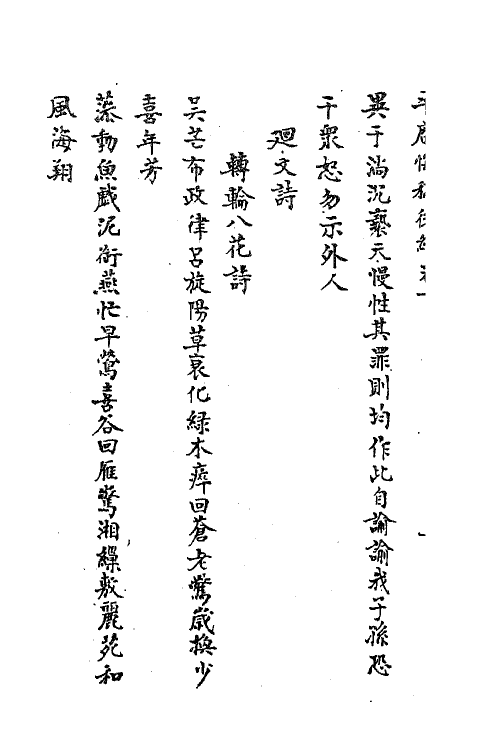 異于湎沉褻天慢性其罪則均作此自諭諭我子孫恐
干衆怒勿示外人
廻文詩
轉輪八花詩
吴芒布政律呂旋陽草衰化綠木瘁回蒼老驚歲換少
喜年芳
藻動魚戱泥銜燕忙早鶯喜谷回雁驚湘繰敷麗苑和
風海翔